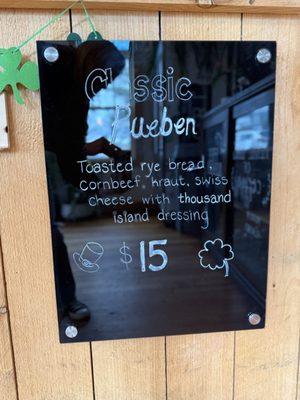 Classic
Rueben
Toasted rye bread,
Cornbeef, kraut, swiss
cheese with thousand
island dressing
$15